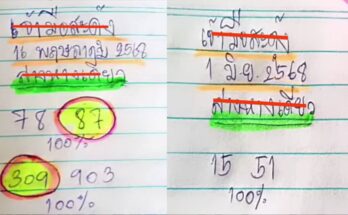 เจ้ามือสะดุ้ง
16 พฤษภาคม 2568
ล่างทางเดียว
78 87
100%
309 903
100%
เจ้ามือสะดุ้ง
1 มิ.ย. 2568
ล่างทางเดียว
15 51
100%